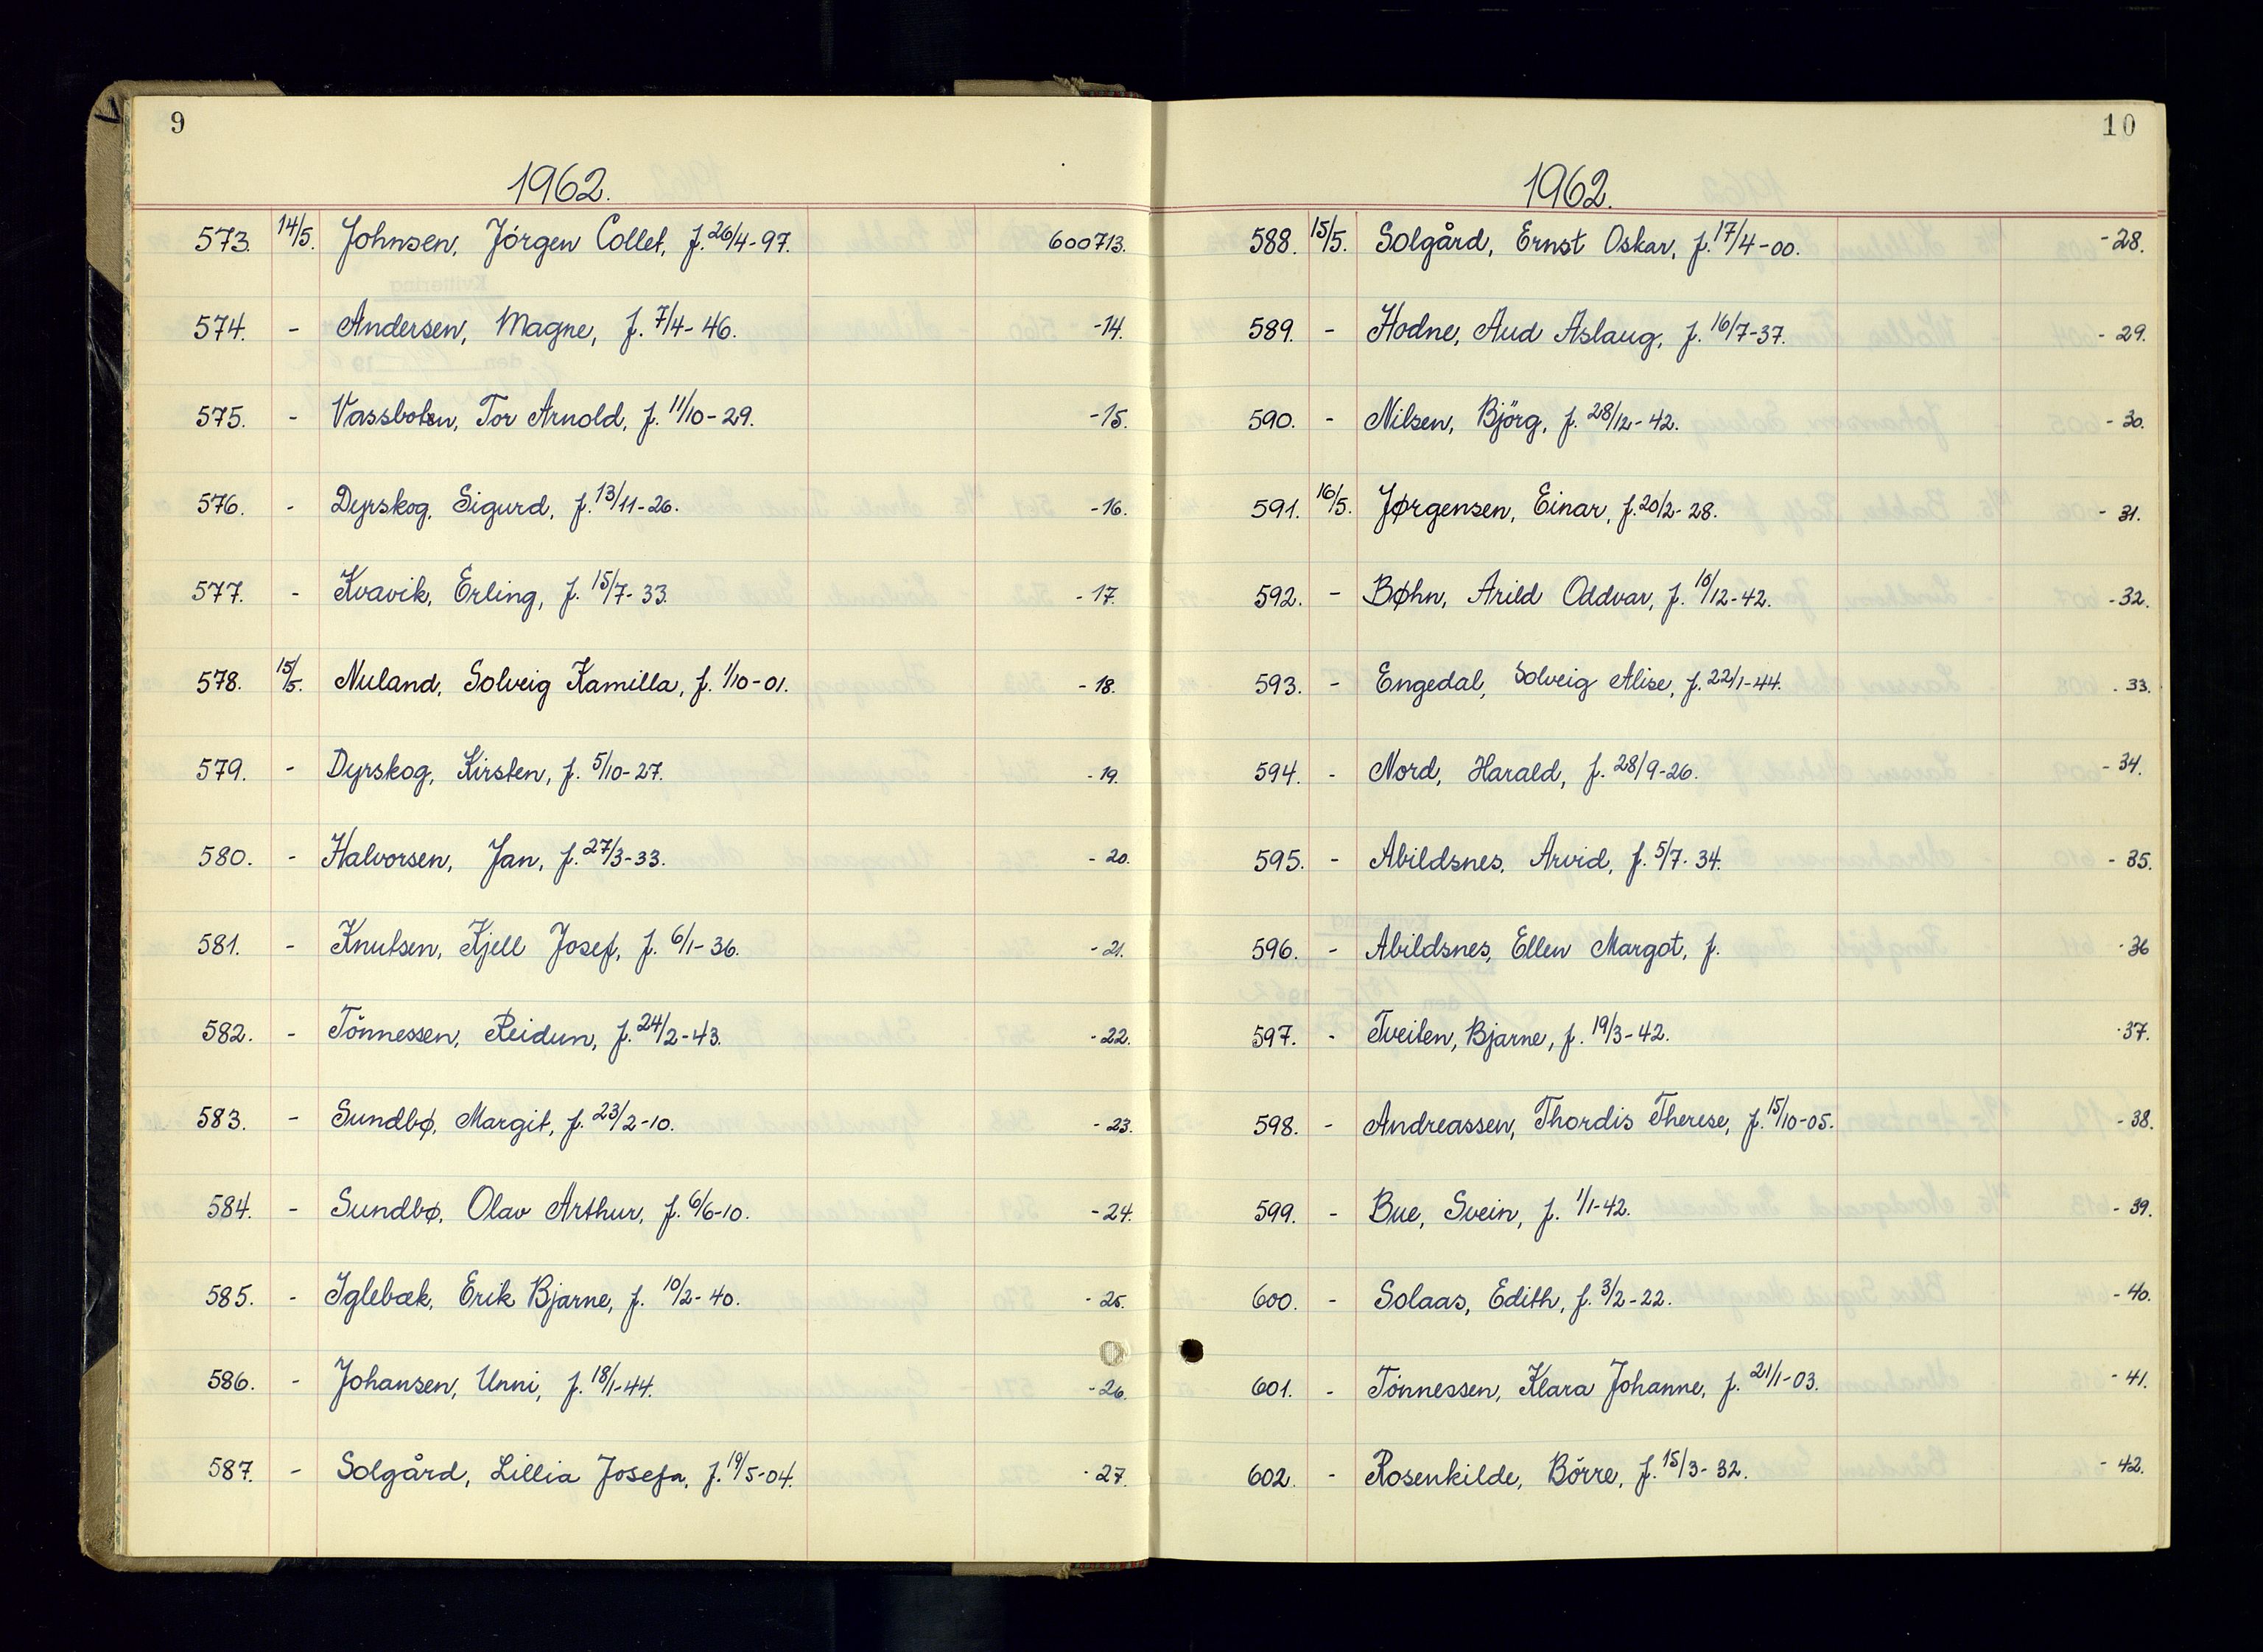 9
1962.
573. 14/5. Johnsen, Jörgen Collet, f. 26/4-97. 600713.
574. - Andersen, Magne, f. 7/4-46. -14.
575. - Vassboten, Tor Arnold, f. 11/10-29. -15.
576. - Dyrskog, Sigurd, f. 13/11-26. -16.
577. - Kvavik, Erling, f. 15/7-33. -17.
578. 15/5. Nuland, Solveig Kamilla, f. 1/10-01. -18.
579. - Dyrskog, Kirsten, f. 5/10-27. -19.
580. - Halvorsen, Jan, f. 27/3-33. -20.
581. - Knutsen, Kjell Josef, f. 6/1-36. -21.
582. - Tönnessen, Reidun, f. 24/2-43. -22.
583. - Sundbø, Margit, f. 23/2-10. -23.
584. - Sundbø, Olav Arthur, f. 6/6-10. -24.
585. - Iglebæk, Erik Bjarne, f. 10/2-40. -25.
586. - Johansen, Unni, f. 18/1-44. -26.
587. - Solgård, Lillia Josefa, f. 19/5-04. -27.
10
1962.
588. 15/5. Solgård, Ernst Oskar, f. 17/4-00. -28.
589. - Hodne, Aud Aslaug, f. 16/7-37. -29.
590. - Nilsen, Björg, f. 28/12-42. -30.
591. 16/5. Jørgensen, Einar, f. 20/2-28. -31.
592. - Bøhn, Arild Oddvar, f. 10/12-42. -32.
593. - Engedal, Solveig Alise, f. 22/1-44. -33.
594. - Nord, Harald, f. 28/9-26. -34.
595. - Abildsnes, Arvid, f. 5/7-34. -35.
596. - Abildsnes, Ellen Margot, f. -36
597. - Tveiten, Bjarne, f. 19/3-42. -37.
598. - Andreassen, Thordis Therese, f. 15/10-05. -38.
599. - Bue, Svein, f. 1/1-42. -39.
600. - Solaas, Edith, f. 3/2-22. -40.
601. - Tönnessen, Klara Johanne, f. 21/1-03. -41.
602. - Rosenkilde, Börre, f. 15/3-32. -42.